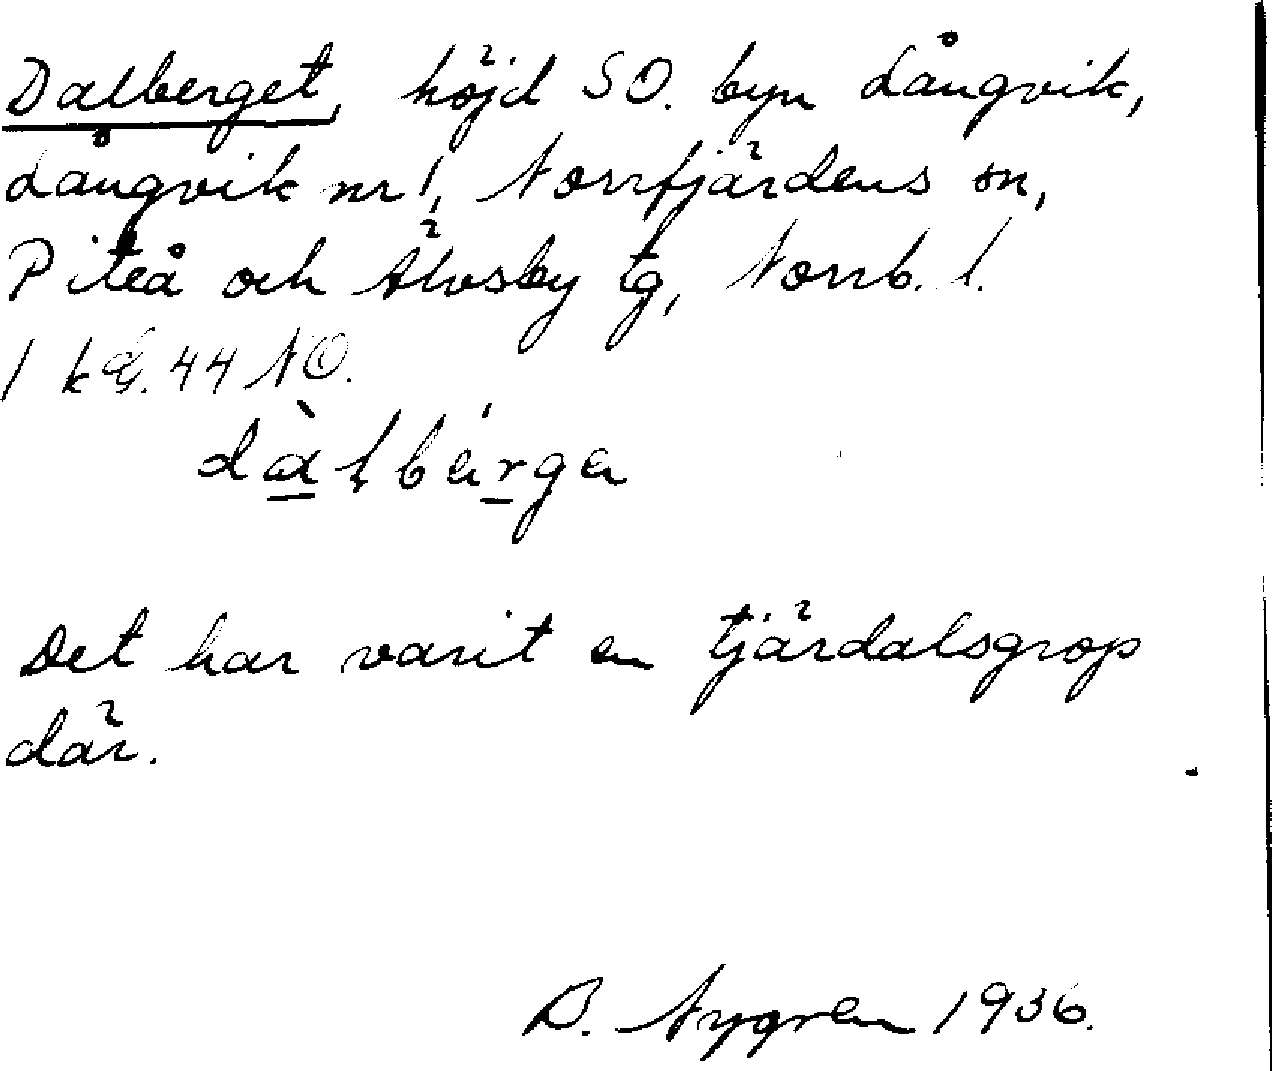 Dalberget, höjd SO. byn Långvik,
Långvik nr 1, Norrfjärdens sn,
Piteå och Älvsby tg, Norrb. l.
44 NO.
dàlbárga
Det har varit en tjärdalsgrop
där.
B. Nygren 1936.